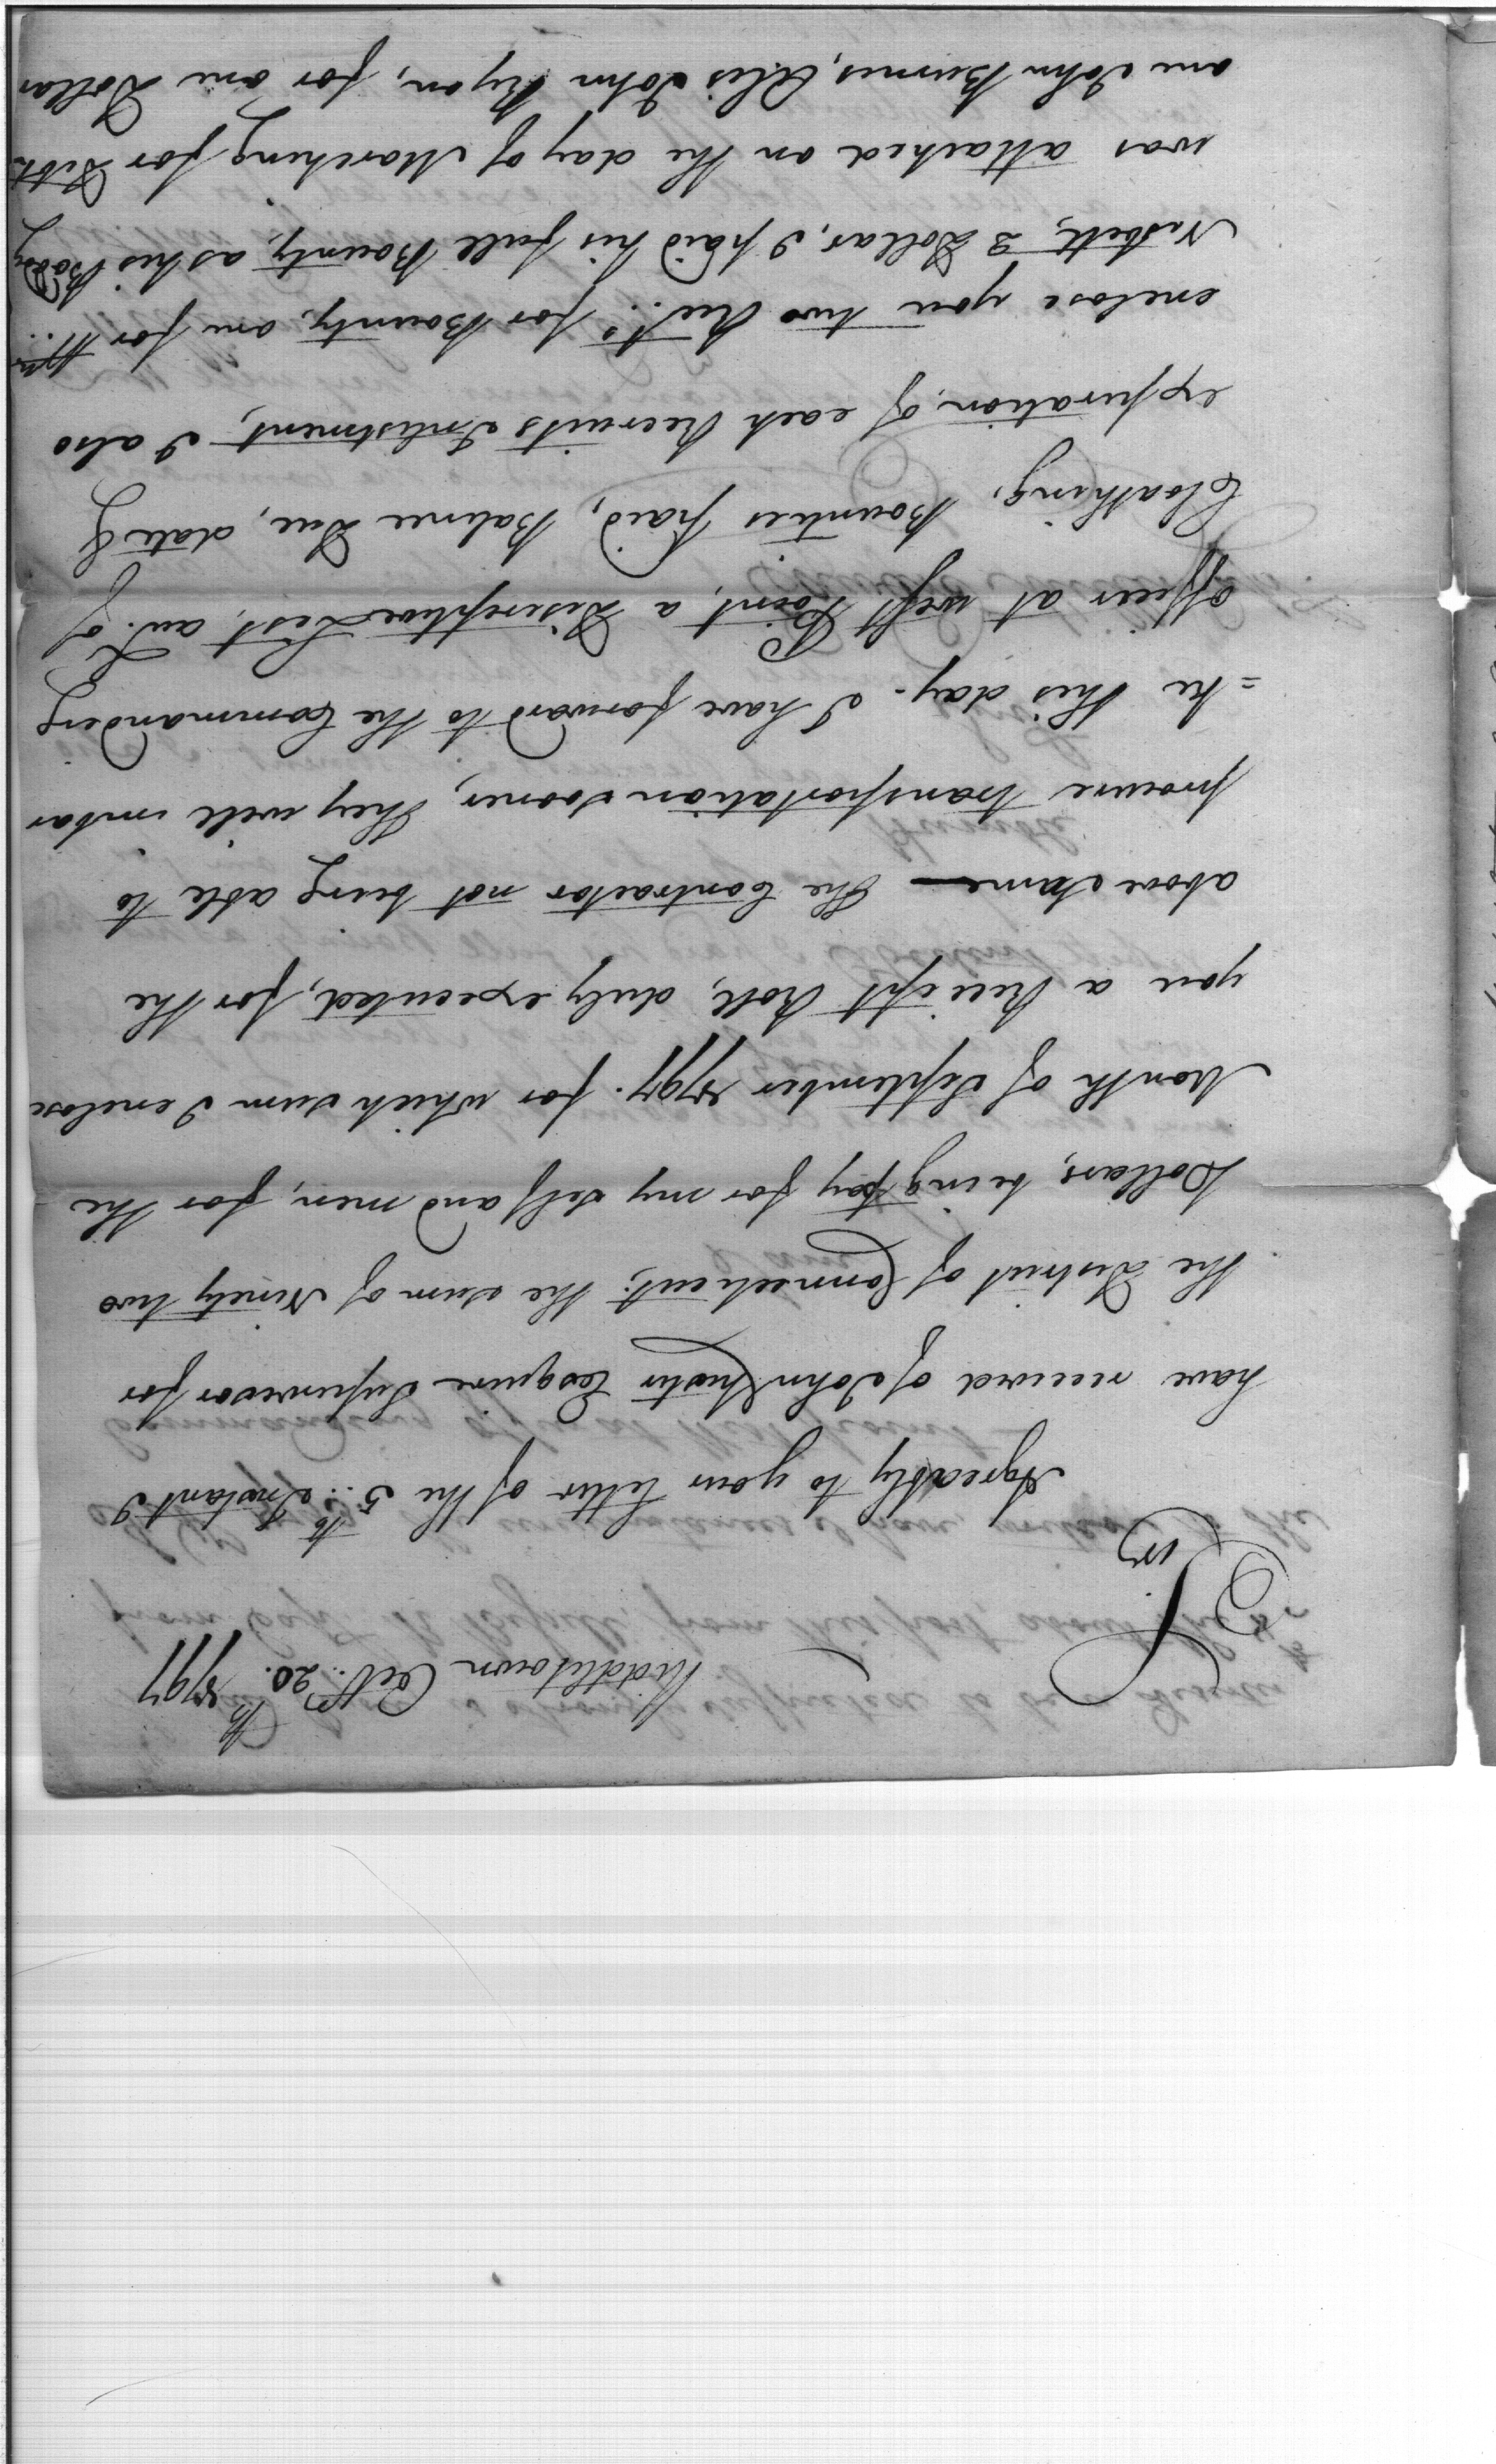 Middletown Oct.. 20.th 1797
Sir
Agreably to your letter of the 5..th Instant I
have received of John Chester Esquire Supervisor for
the District of Connecticut; the sum of Ninety two
Dollars, being pay for my self and men, for the
Month of September 1797. for which sum I enclose
you a Receipt Roll, duly executed, for the
above sume — The Contractor not being able to
procure transportation sooner, they will imbar
=ke this day. I have forward to the Commanding
officer at west Point, a Discreptive List, au. of
Cloathing, Bounties paid, Balance Due, date of
expiration, of each Recruits Inlistment, I also
enclose you two Rec.ts for Bounty, one for Wm..
Nesbett, 2 Dollars, I paid his full Bounty, as his Body
was attached on the day of Marching for Debt
one John Burnes, Alis John Ryon, for one Dollar